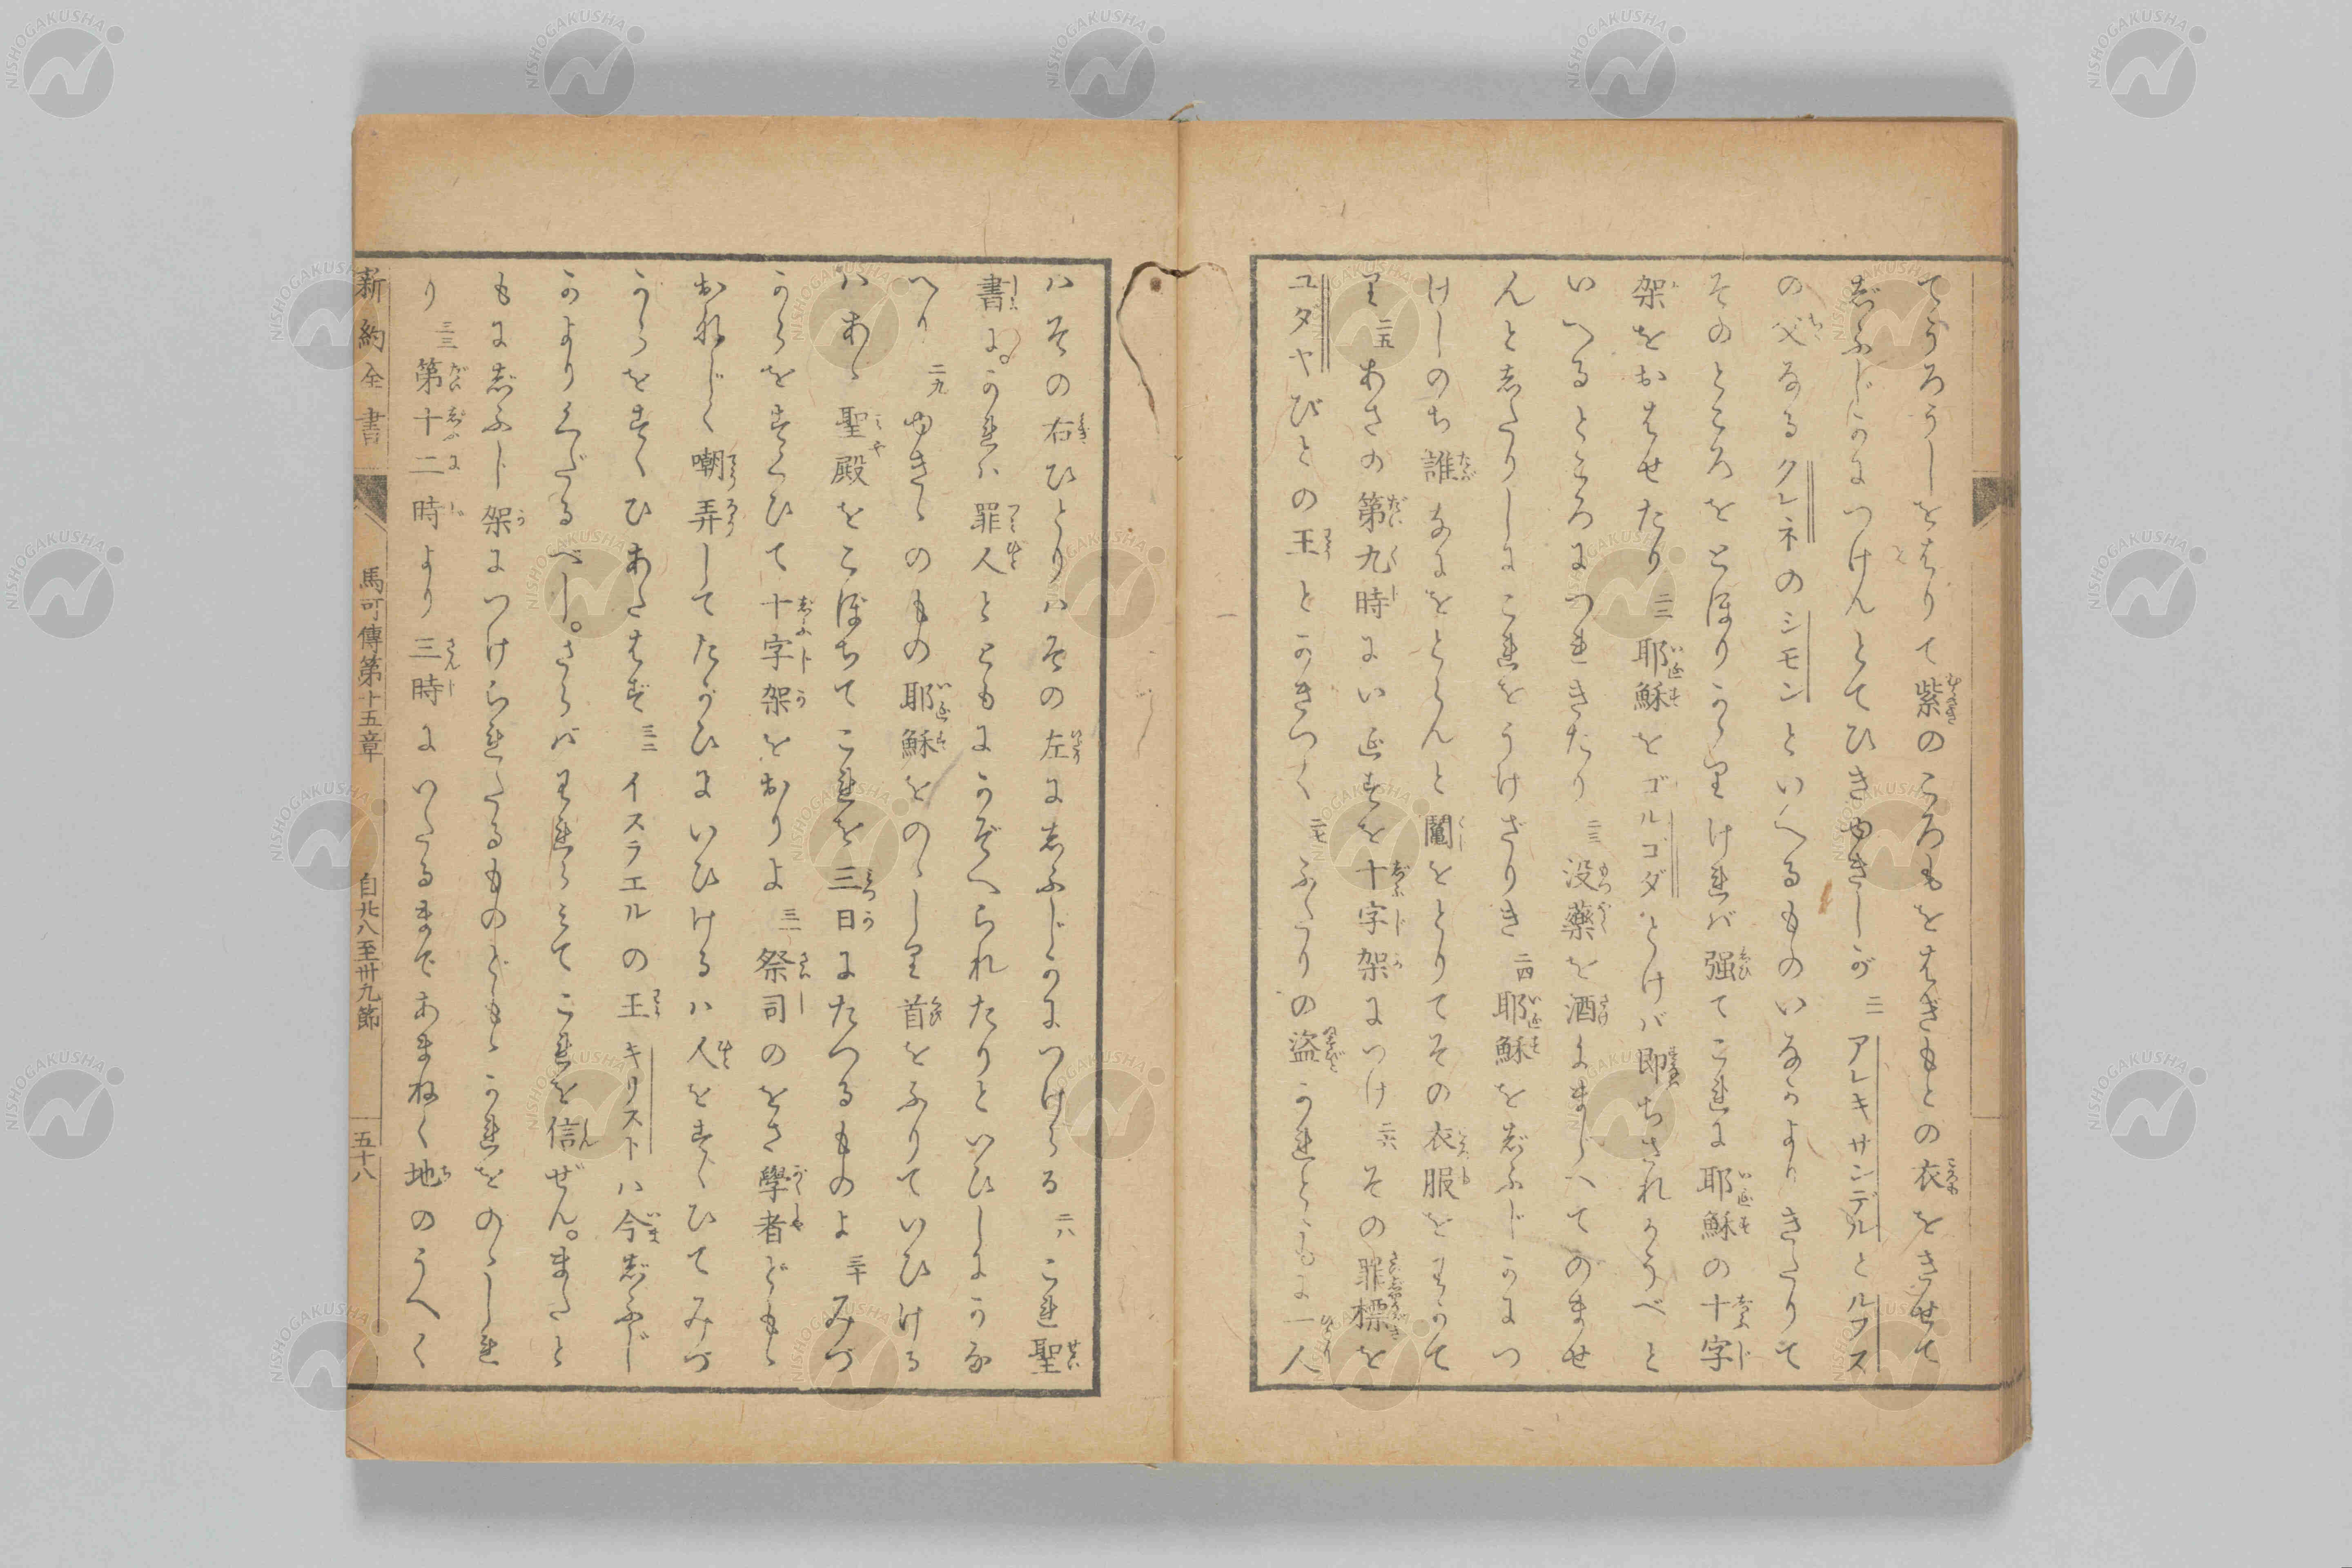 てうろうしをはりて紫のころもをはぎもとの衣をきせて
志ふじかにつけんとてひきゆきしが 二一 アレキサンデルとルフス
の父なるクレネのシモンといへるものいなかよりきたりて
そのところをとほりかゝりけれバ强てこれに耶穌の十字
架をおはせたり 二二 耶穌をゴルゴダとけバ即ちされかうべと
いへるところにつれきたり 二三 没藥を酒にまじへてのませ
んと志たりしにこれをうけざりき 二四 耶穌を志ふじかにつ
けしのち誰なにをとらんと鬮をとりてその衣服をわかて
り 二五 あさの第九時にいゑすを十字架につけ 二六 その罪標を
ユダヤびとの王とかきつく 二七 ふたりの盗かれとゝもに一人
ハその右ひとりハその左に志ふじかにつけらる 二八 これ聖
書に。かれハ罪人とともにかぞへられたりといひしにかな
へり 二九 ゆきゝのもの耶穌をのゝしり首をふりていひける
ハあゝ聖殿をこぼちてこれを三日にたつるものよ 三十 みづ
からをすくひて十字架をおりよ 三一 祭司のをさ學者どもゝ
おなじく嘲弄してたがひにいひけるハ人をすくひてみづ
からをすくひあたはず 三二 イスラエルの王キリストハ今志ふじ
かよりくだるべし。さらバわれらみてこれを信ぜん。またと
もに志ふじ架につけられたるものどもゝかれをのゝしれ
り 三三 第十二時より三時にいたるまであまねく地のうへく
新約全書 馬可傳第十五章 自廿八至卅九節 五十八
NISHOGAKUSHA